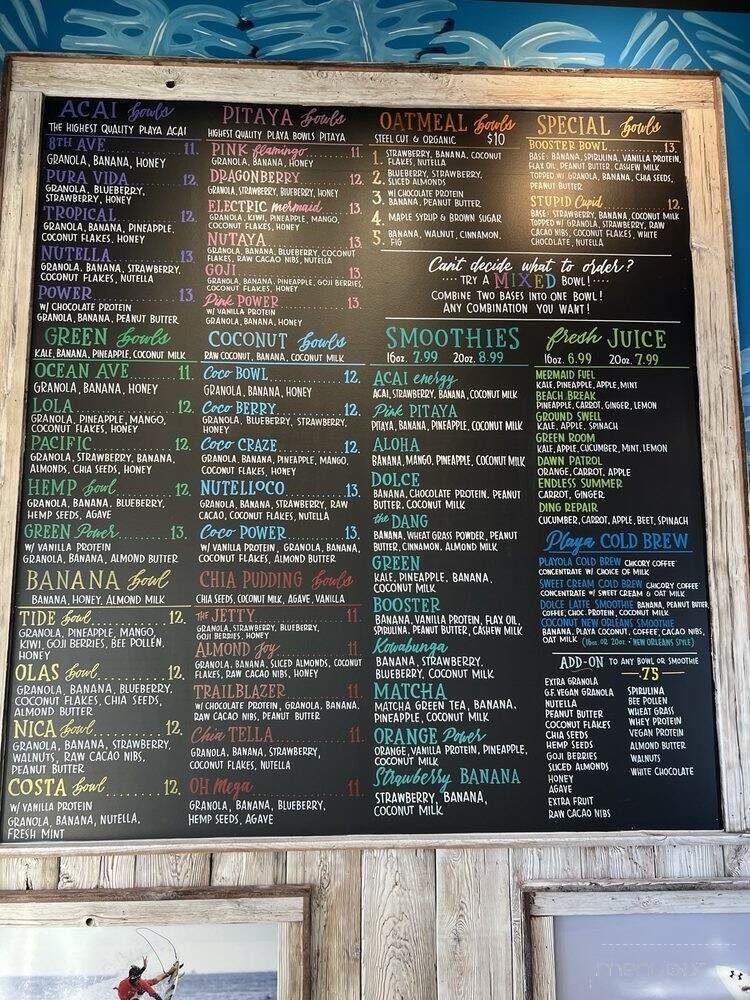 ACAI bowls
THE HIGHEST QUALITY PLAYA ACAI
8TH AVE 11.
GRANOLA, BANANA, HONEY
PURA VIDA 12.
GRANOLA, BLUEBERRY,
STRAWBERRY, HONEY
TROPICAL 12.
GRANOLA, BANANA, PINEAPPLE,
COCONUT FLAKES, HONEY
NUTELLA 13.
GRANOLA, BANANA, STRAWBERRY,
COCONUT FLAKES, NUTELLA
POWER 13.
W/ CHOCOLATE PROTEIN
GRANOLA, BANANA, PEANUT BUTTER
GREEN bowls
KALE, BANANA, PINEAPPLE, COCONUT MILK
OCEAN AVE 11.
GRANOLA, BANANA, HONEY
LOLA 12.
GRANOLA, PINEAPPLE, MANGO,
COCONUT FLAKES, HONEY
PACIFIC 12.
GRANOLA, STRAWBERRY, BANANA,
ALMONDS, CHIA SEEDS, HONEY
HEMP bowl 12.
GRANOLA, BANANA, BLUEBERRY,
HEMP SEEDS, AGAVE
GREEN Power 13.
W/ VANILLA PROTEIN
GRANOLA, BANANA, ALMOND BUTTER
BANANA bowl
BANANA, HONEY, ALMOND MILK
TIDE bowl 12.
GRANOLA, PINEAPPLE, MANGO,
KIWI, GOJI BERRIES, BEE POLLEN,
HONEY
OLAS bowl 12.
GRANOLA, BANANA, BLUEBERRY,
COCONUT FLAKES, CHIA SEEDS,
ALMOND BUTTER
NICA bowl 12.
GRANOLA, BANANA, STRAWBERRY,
WALNUTS, RAW CACAO NIBS,
PEANUT BUTTER
COSTA bowl 12.
W/ VANILLA PROTEIN
GRANOLA, BANANA, NUTELLA,
FRESH MINT
PITAYA bowls
HIGHEST QUALITY PLAYA BOWLS PITAYA
PINK flamingo 11.
GRANOLA, BANANA, HONEY
DRAGONBERRY 12.
GRANOLA, STRAWBERRY, BLUEBERRY, HONEY
ELECTRIC mermaid 13.
GRANOLA, KIWI, PINEAPPLE, MANGO,
COCONUT FLAKES, HONEY
NUTAYA 13.
GRANOLA, BANANA, BLUEBERRY, COCONUT
FLAKES, RAW CACAO NIBS, NUTELLA
GOJI 13.
GRANOLA, BANANA, PINEAPPLE, GOJI BERRIES,
COCONUT FLAKES, HONEY
Pink POWER 13.
W/ VANILLA PROTEIN
GRANOLA, BANANA, HONEY
COCONUT bowls
RAW COCONUT, BANANA, COCONUT MILK
Coco BOWL 12.
GRANOLA, BANANA, HONEY
Coco BERRY 12.
GRANOLA, BLUEBERRY, STRAWBERRY,
HONEY
Coco CRAZE 12.
GRANOLA, BANANA, PINEAPPLE, MANGO,
COCONUT FLAKES, HONEY
NUTELLOCO 13.
GRANOLA, BANANA, STRAWBERRY, RAW
CACAO, COCONUT FLAKES, NUTELLA
Coco POWER 13.
W/ VANILLA PROTEIN, GRANOLA, BANANA,
COCONUT FLAKES, ALMOND BUTTER
CHIA PUDDING bowls
CHIA SEEDS, COCONUT MILK, AGAVE, VANILLA
THE JETTY 11.
GRANOLA, STRAWBERRY, BLUEBERRY,
GOJI BERRIES, HONEY
ALMOND Joy 11.
GRANOLA, BANANA, SLICED ALMONDS, COCONUT
FLAKES, RAW CACAO NIBS, HONEY
TRAILBLAZER 11.
W/ CHOCOLATE PROTEIN, GRANOLA, BANANA,
RAW CACAO NIBS, PEANUT BUTTER
Chia TELLA 11.
GRANOLA, BANANA, STRAWBERRY,
COCONUT FLAKES, NUTELLA
OH Mega 11.
GRANOLA, BANANA, BLUEBERRY,
HEMP SEEDS, AGAVE
OATMEAL bowls
STEEL CUT & ORGANIC $10
1. STRAWBERRY, BANANA, COCONUT
FLAKES, NUTELLA
2. BLUEBERRY, STRAWBERRY,
SLICED ALMONDS
3. W/ CHOCOLATE PROTEIN
BANANA, PEANUT BUTTER
4. MAPLE SYRUP & BROWN SUGAR
5. BANANA, WALNUT, CINNAMON,
FIG
SPECIAL bowls
BOOSTER BOWL 13.
BASE: BANANA, SPIRULINA, VANILLA PROTEIN,
FLAX OIL, PEANUT BUTTER, CASHEW MILK
TOPPED W/ GRANOLA, BANANA, CHIA SEEDS,
PEANUT BUTTER
STUPID Cupid 12.
BASE: STRAWBERRY, BANANA, COCONUT MILK
TOPPED W/ GRANOLA, STRAWBERRY, RAW
CACAO NIBS, COCONUT FLAKES, WHITE
CHOCOLATE, NUTELLA
Can't decide what to order?
TRY A MIXED BOWL!
COMBINE TWO BASES INTO ONE BOWL!
ANY COMBINATION YOU WANT!
SMOOTHIES
16oz. 7.99 20oz. 8.99
ACAI energy
ACAI, STRAWBERRY, BANANA, COCONUT MILK
Pink PITAYA
PITAYA, BANANA, PINEAPPLE, COCONUT MILK
ALOHA
BANANA, MANGO, PINEAPPLE, COCONUT MILK
DOLCE
BANANA, CHOCOLATE PROTEIN, PEANUT
BUTTER, COCONUT MILK
the DANG
BANANA, WHEAT GRASS POWDER, PEANUT
BUTTER, CINNAMON, ALMOND MILK
GREEN
KALE, PINEAPPLE, BANANA,
COCONUT MILK
BOOSTER
BANANA, VANILLA PROTEIN, FLAX OIL,
SPIRULINA, PEANUT BUTTER, CASHEW MILK
Kowabunga
BANANA, STRAWBERRY,
BLUEBERRY, COCONUT MILK
MATCHA
MATCHA GREEN TEA, BANANA,
PINEAPPLE, COCONUT MILK
ORANGE Power
ORANGE, VANILLA PROTEIN, PINEAPPLE,
COCONUT MILK
Strawberry BANANA
STRAWBERRY, BANANA,
COCONUT MILK
fresh JUICE
16oz. 6.99 20oz. 7.99
MERMAID FUEL
KALE, PINEAPPLE, APPLE, MINT
BEACH BREAK
PINEAPPLE, CARROT, GINGER, LEMON
GROUND SWELL
KALE, APPLE, SPINACH
GREEN ROOM
KALE, APPLE, CUCUMBER, MINT, LEMON
DAWN PATROL
ORANGE, CARROT, APPLE
ENDLESS SUMMER
CARROT, GINGER
DING REPAIR
CUCUMBER, CARROT, APPLE, BEET, SPINACH
Playa COLD BREW
PLAYOLA COLD BREW CHICORY COFFEE
CONCENTRATE W/ CHOICE OF MILK
SWEET CREAM COLD BREW CHICORY COFFEE
CONCENTRATE W/ SWEET CREAM & OAT MILK
DOLCE LATTE SMOOTHIE BANANA, PEANUT BUTTER,
COFFEE, CHOC. PROTEIN, COCONUT MILK
COCONUT NEW ORLEANS SMOOTHIE
BANANA, PLAYA COCONUT, COFFEE, CACAO NIBS,
OAT MILK (16oz. OR 20oz. • NEW ORLEANS STYLE)
ADD-ON TO ANY BOWL OR SMOOTHIE
.75
EXTRA GRANOLA
G.F. VEGAN GRANOLA
NUTELLA
PEANUT BUTTER
COCONUT FLAKES
CHIA SEEDS
HEMP SEEDS
GOJI BERRIES
SLICED ALMONDS
HONEY
AGAVE
EXTRA FRUIT
RAW CACAO NIBS
SPIRULINA
BEE POLLEN
WHEAT GRASS
WHEY PROTEIN
VEGAN PROTEIN
ALMOND BUTTER
WALNUTS
WHITE CHOCOLATE